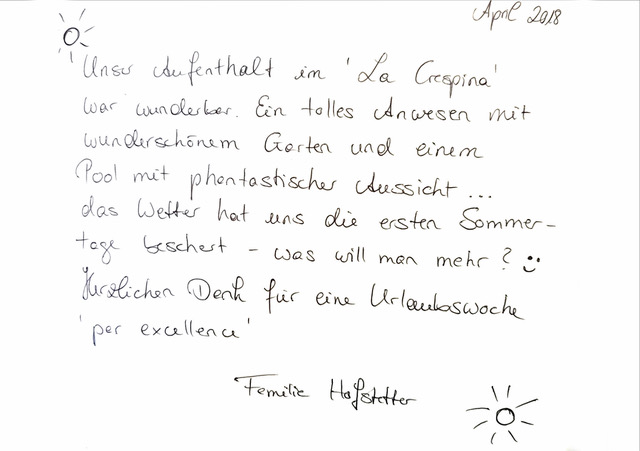 April 2018
Unser Aufenthalt im 'La Crespina'
war wunderbar. Ein tolles Anwesen mit
wunderschönem Garten und einem
Pool mit phantastischer Aussicht ...
das Wetter hat uns die ersten Sommer-
tage beschert - was will man mehr? :)
Herzlichen Dank für eine Urlaubswoche
'per excellence'
Familie Hofstetter